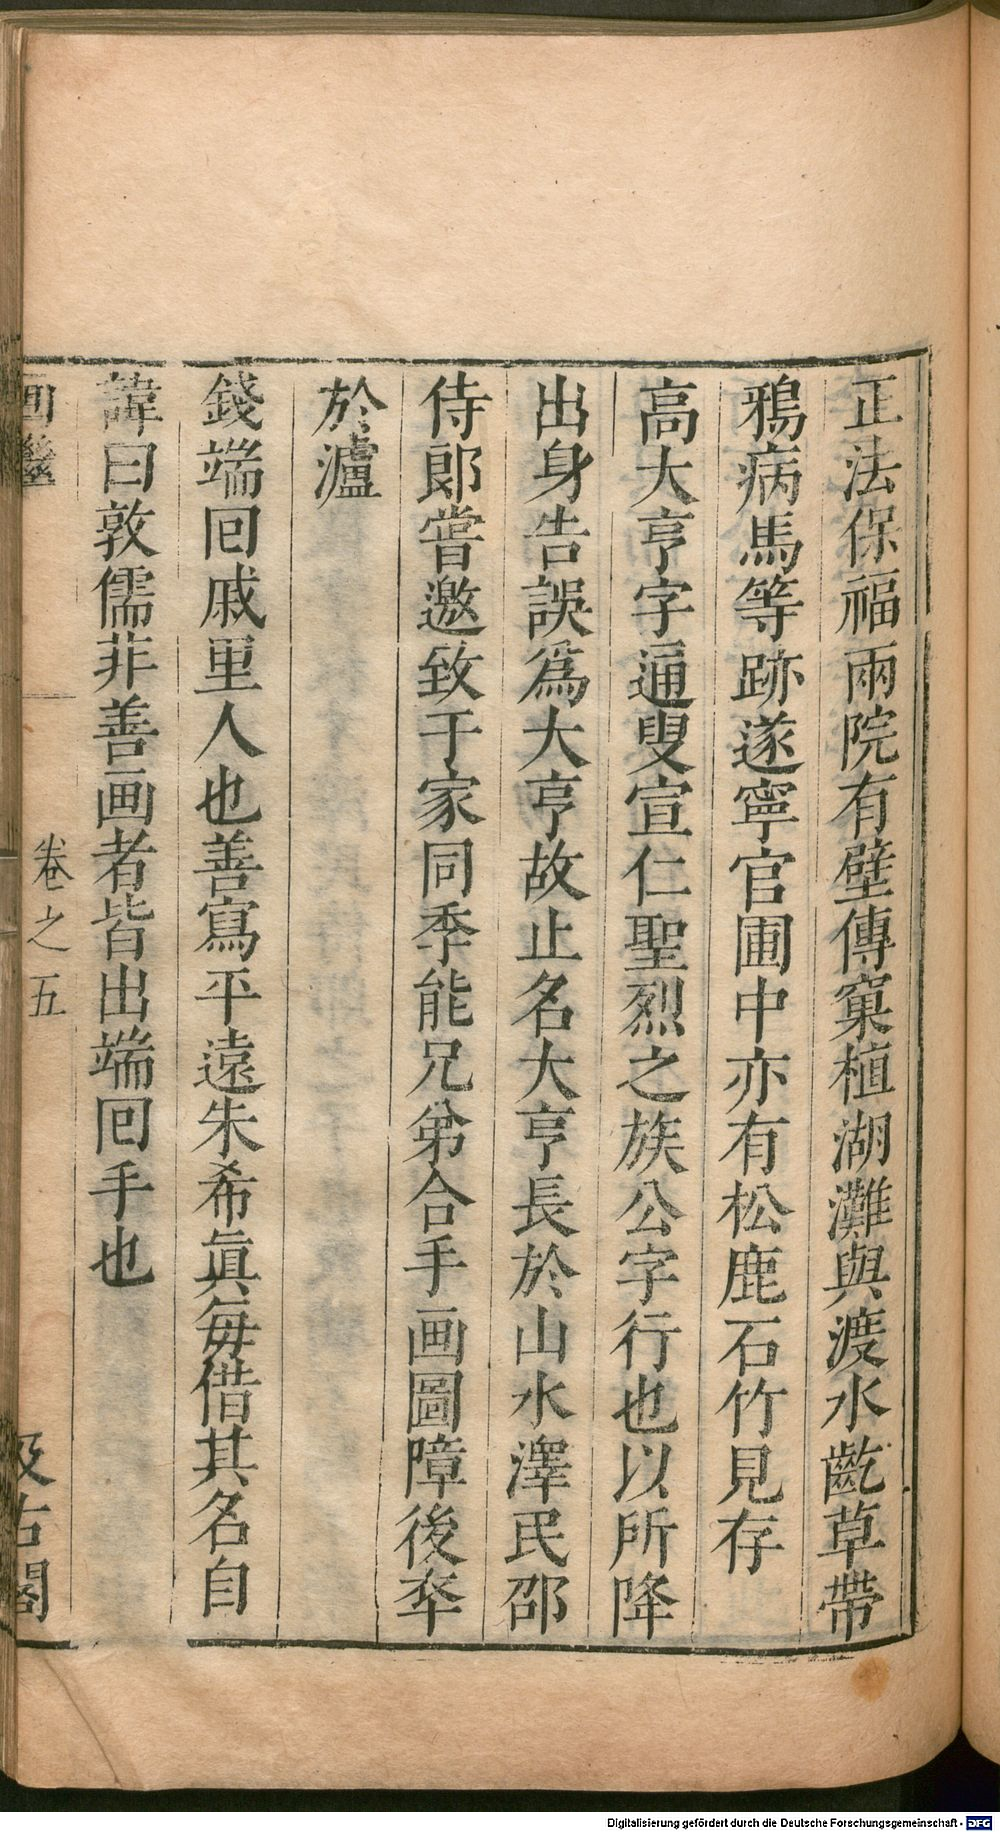 正法保福兩院有壁傳窠植湖灘與渡水齕草帶
鴉病馬等跡遂寧官圃中亦有松鹿石竹見存
高大亨字通叟宣仁聖烈之族公字行也以所降
出身告誤爲大亨故止名大亨長於山水澤民邵
侍郎嘗邀致于家同季能兄弟合手画圖障後卒
於瀘
錢端回戚里人也善寫平遠朱希眞每借其名自
諱曰敦儒非善画者皆出端回手也
画繼
卷之五
汲古閣
Digitalisierung gefördert durch die Deutsche Forschungsgemeinschaft - DFG